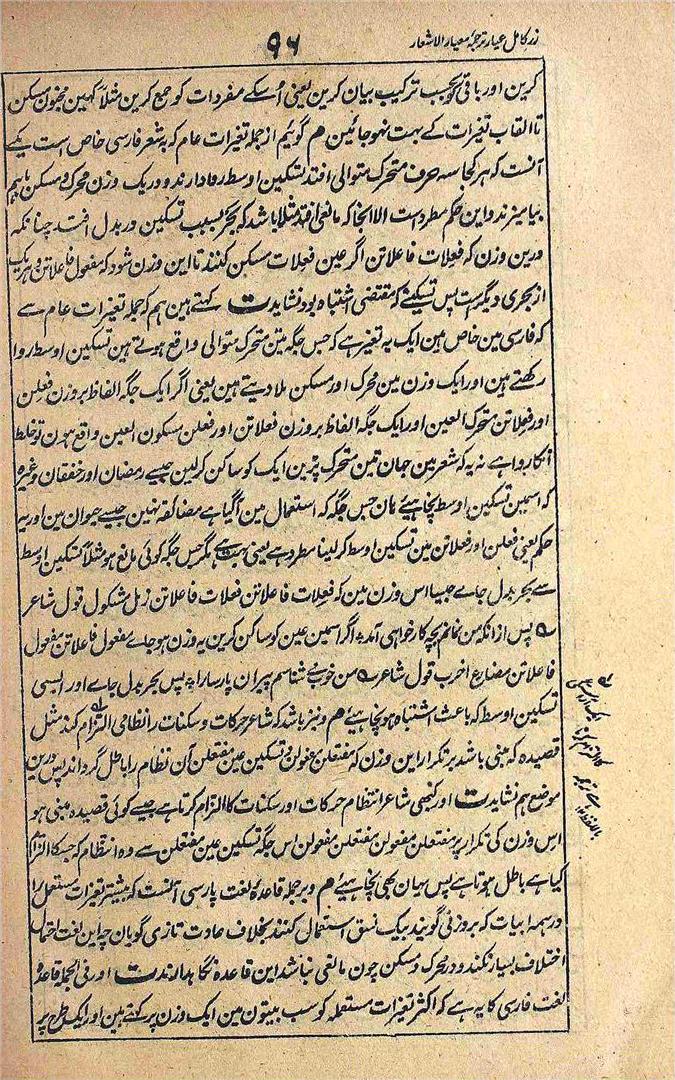 زر کامل عیار ترجمۂ معیار الاشعار
۹۶
کرین اور باقی کو بحسب ترکیب بیان کرین یعنی اُسکے مفردات کو جمع کرین مثلاً کہین مخبون مسکن
تا القاب تغیرات کے بہت نہوجائین هم گوئیم از جملہ تغیرات عام کہ بہ شعر فارسی خاص است یکے
آنست کہ ہر کجا سہ حرف متحرک متوالی افتد تسکین اوسط روا دارند و در یک وزن محرک و مسکن باہم
بیامیزند و این حکم مطرد است الا آنجا کہ مانعی افتد مثلا باشد کہ بحر بسبب تسکین در بدل افتد چنانکہ
درین وزن کہ فعلات فاعلاتن اگر عین فعلات مسکن کنند تا این وزن شود کہ مفعول فاعلاتن و ہریک
از بحری دیگر است پس تسکینے کہ مقتضی اشتباہ بود نشاید ت کہتے ہین ہم کہ جملہ تغیرات عام سے
کہ فارسی مین خاص ہین ایک یہ تغیر ہے کہ جس جگہ تین متحرک متوالی واقع ہوتے ہین تسکین اوسط روا
رکھتے ہین اور ایک وزن مین محرک اور مسکن ملا دیتے ہین یعنی اگر ایک جگہ الفاظ بر وزن فعلن
اور فعلاتن متحرک العین اور ایک جگہ الفاظ بر وزن فعلاتن اور فعلن مسکون العین واقع ہون تو خلط
انکا روا ہے نہ یہ کہ شعر مین جہان تین متحرک پڑین ایک کو ساکن کرلین جیسے رمضان اور خفقان وغیرہ
کہ اسمین تسکین اوسط نچاہیئے ہان جس جگہ کہ استعمال مین آگیا ہے مضائقہ نہین جیسے حیوان مین اور یہ
حکم یعنی فعلن اور فعلاتن مین تسکین اوسط کرلینا مطرد ہے یعنی بہت ہے مگر جس جگہ کوئی مانع ہو مثلاً تسکین اوسط
سے بحر بدل جاے جیسا اس وزن مین کہ فعلات فاعلاتن فعلات فاعلاتن رمل مشکول قول شاعر
ے پس ازانکہ من نمانم بچہ کار خواہی آمد ؞ اگر اسمین عین کو ساکن کرین یہ وزن ہوجاے مفعول فاعلاتن مفعول
فاعلاتن مضارع اخرب قول شاعر ے من خوب می شناسم پیران پارسا را ؞ پس بحر بدل جاے اور ایسی
تسکین اوسط کہ باعث اشتباہ ہو نچاہیئے هم و نیز باشد کہ شاعر حرکات و سکنات را نظامی التزام کند مثل
قصیدہ کہ مبنی باشد بر تکرار این وزن کہ مفتعلن مفعولن و تسکین عین مفتعلن آن نظام را باطل گرداند پس درین
موضع ہم نشاید ت اور کبھی شاعر انتظام حرکات اور سکنات کا التزام کرتا ہے جیسے کوئی قصیدہ مبنی ہو
اس وزن کی تکرار پر مفتعلن مفعولن مفتعلن مفعولن اس جگہ تسکین عین مفتعلن سے وہ انتظام کہ جسکا التزام
کیا ہے باطل ہوتا ہے پس یہان بھی نچاہیئے هم و بر جملہ قاعدۂ لغت پارسی آنست کہ بیشتر تغیرات مستعمل را
در ہمہ ابیات کہ بر وزنی گویند بیک نسق استعمال کنند بخلاف عادت تازی گویان چہ این لغت احتمال
اختلاف بسیار نکند و در محرک و مسکن چون مانعی نباشد این قاعدہ نگاہ ندارند ت اور فی الجملہ قاعدہ
لغت فارسی کا یہ ہے کہ اکثر تغیرات مستعملہ کو سب بیتون مین ایک وزن پر کہتے ہین اور ایک طرح پر